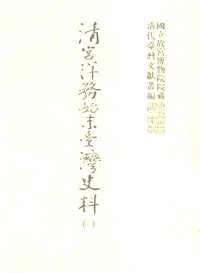 國立故宮博物院院藏
清代臺灣文獻叢編
清宮洋務始末臺灣史料
(一)